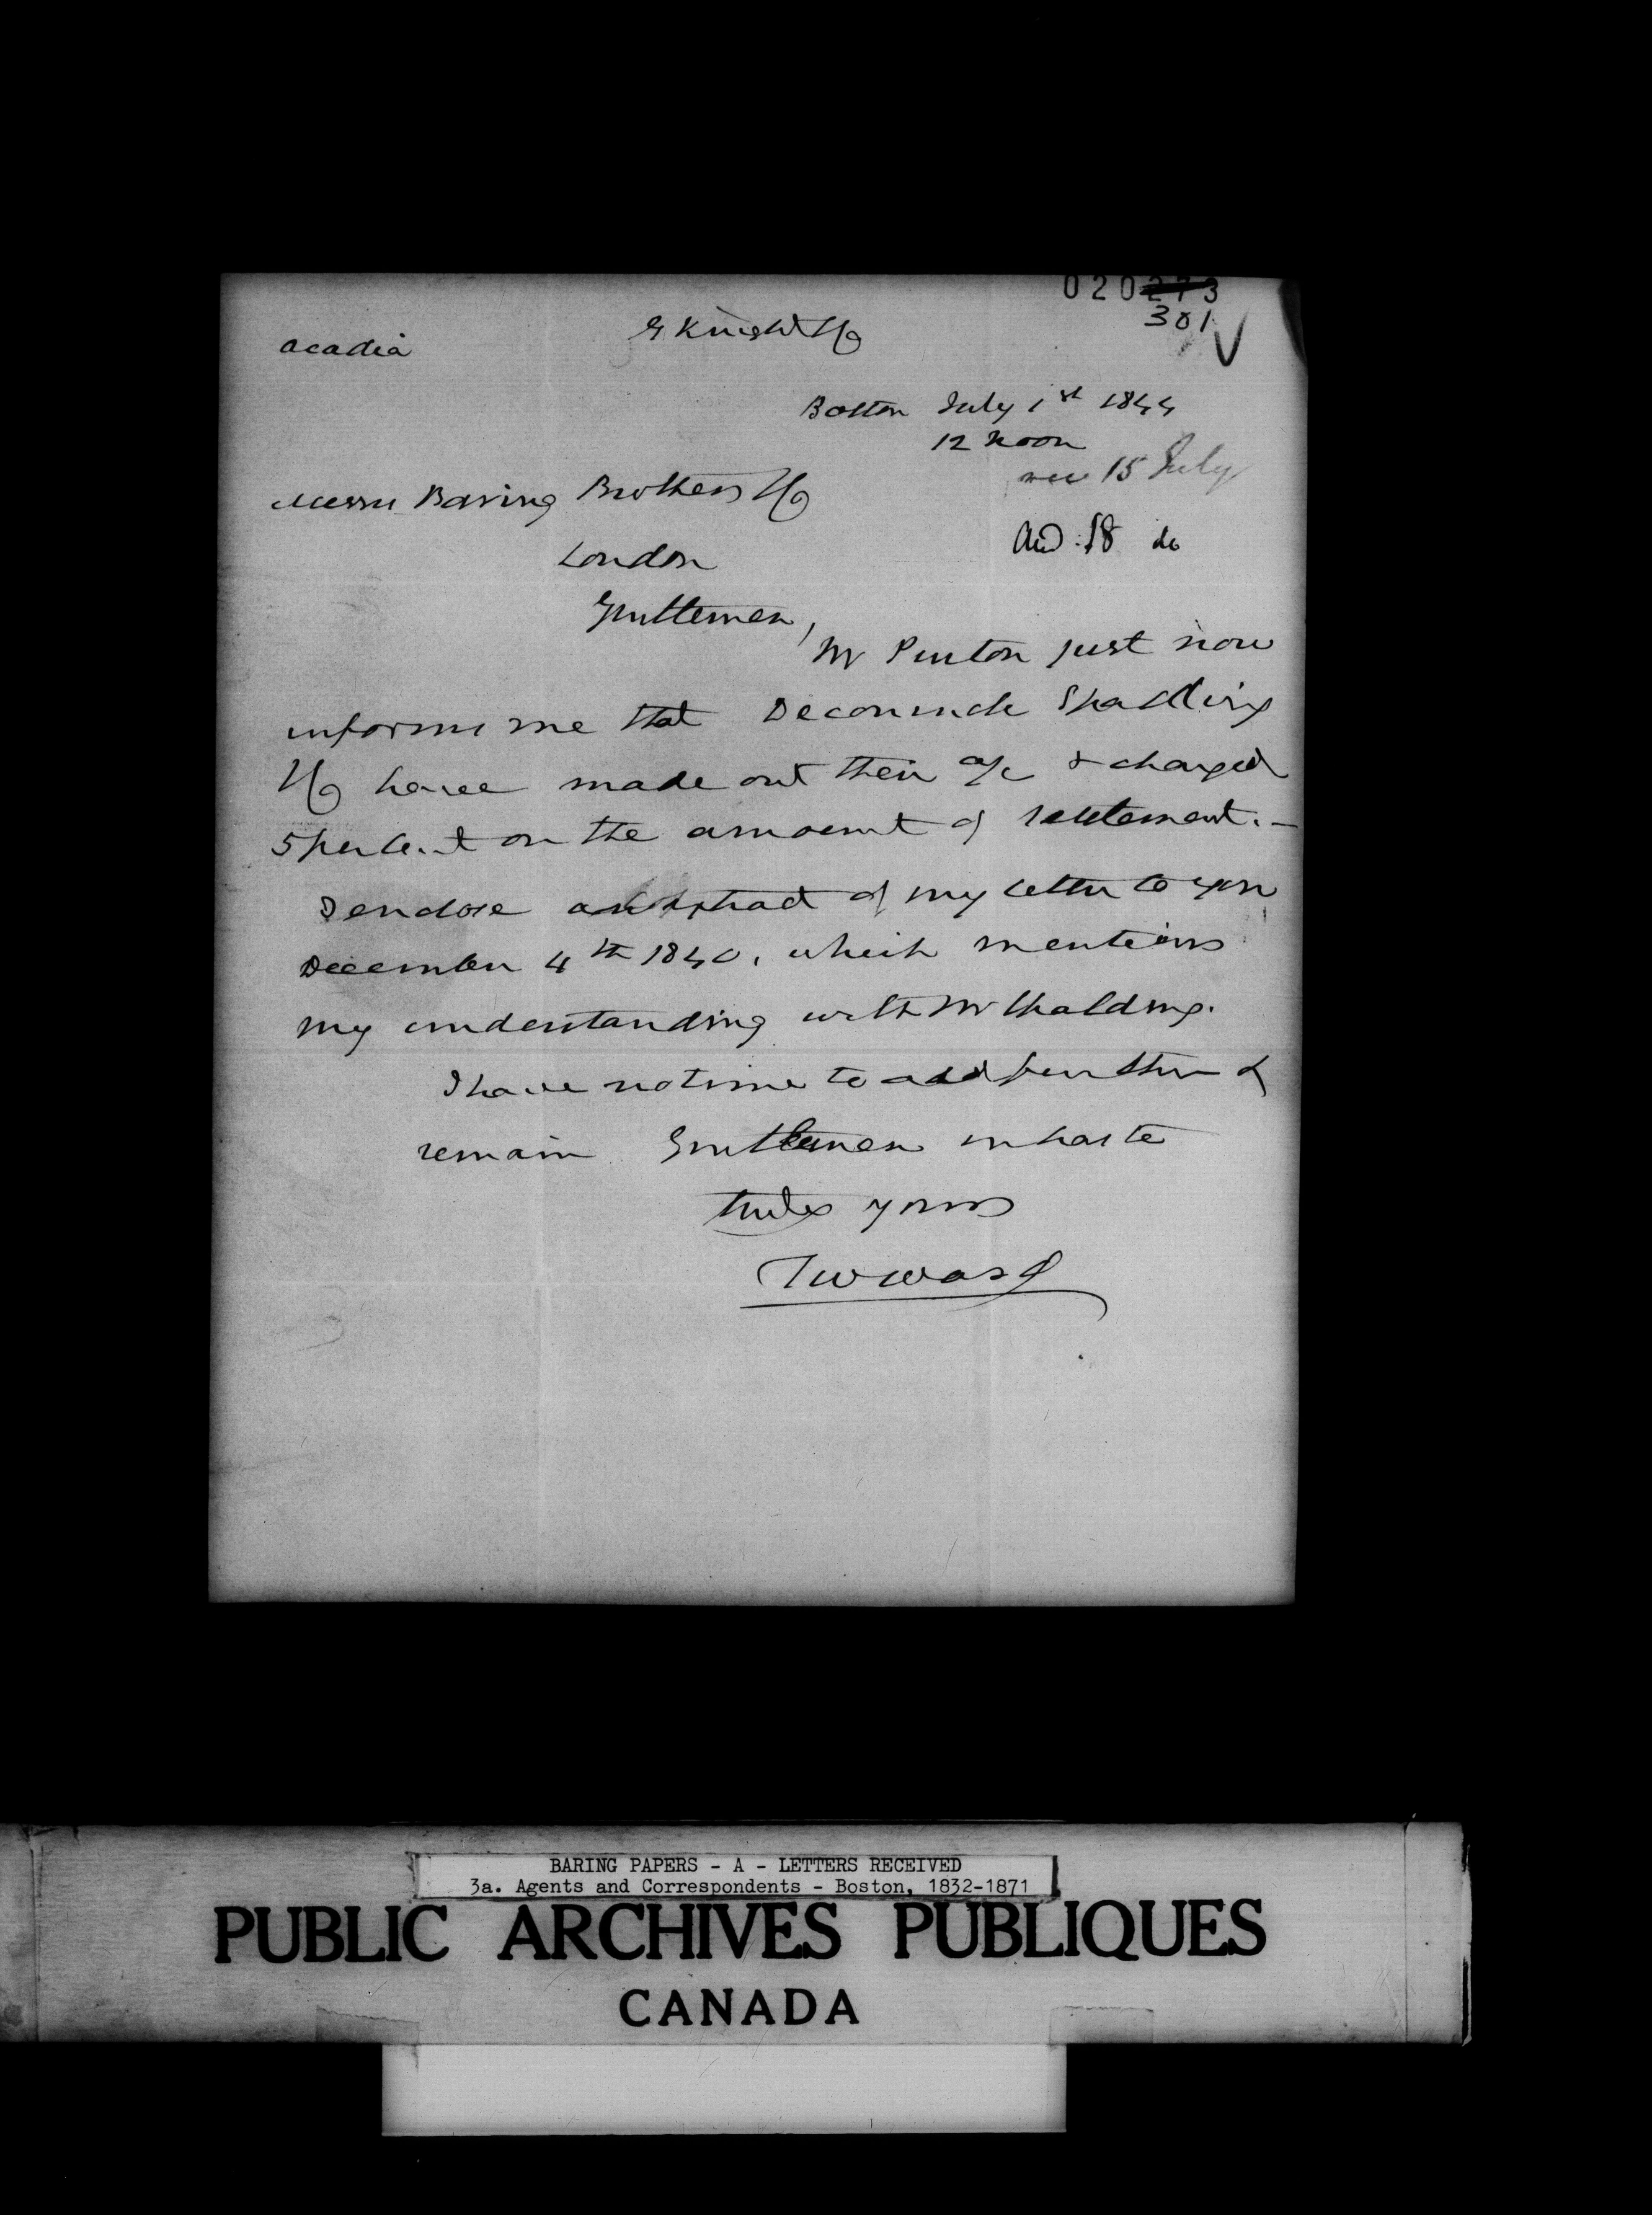 020273
301
acadia
G Knight & Co
Boston July 1st 1844
12 Noon
rec 15 July
Messrs Baring Brothers & Co
and 18 do
London
Gentlemen,
Mr Purton just now
informs me that Deconinck Spalding
& Co have made out their a/c & charged
5 per Cent on the amount of settlement. –
I enclose an extract of my letter to you
December 4th 1840, which mentions
my understanding with Mr Spalding.
I have no time to add further &
remain Gentlemen in haste
truly yours
T W Ward
BARING PAPERS - A - LETTERS RECEIVED
3a. Agents and Correspondents - Boston, 1832-1871
PUBLIC ARCHIVES PUBLIQUES
CANADA